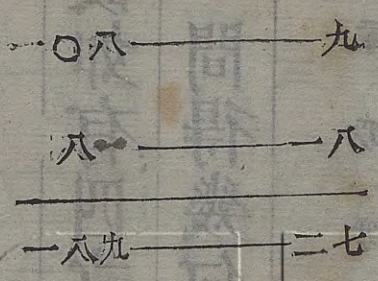 一〇八————九
八一————一八
一八九————二七